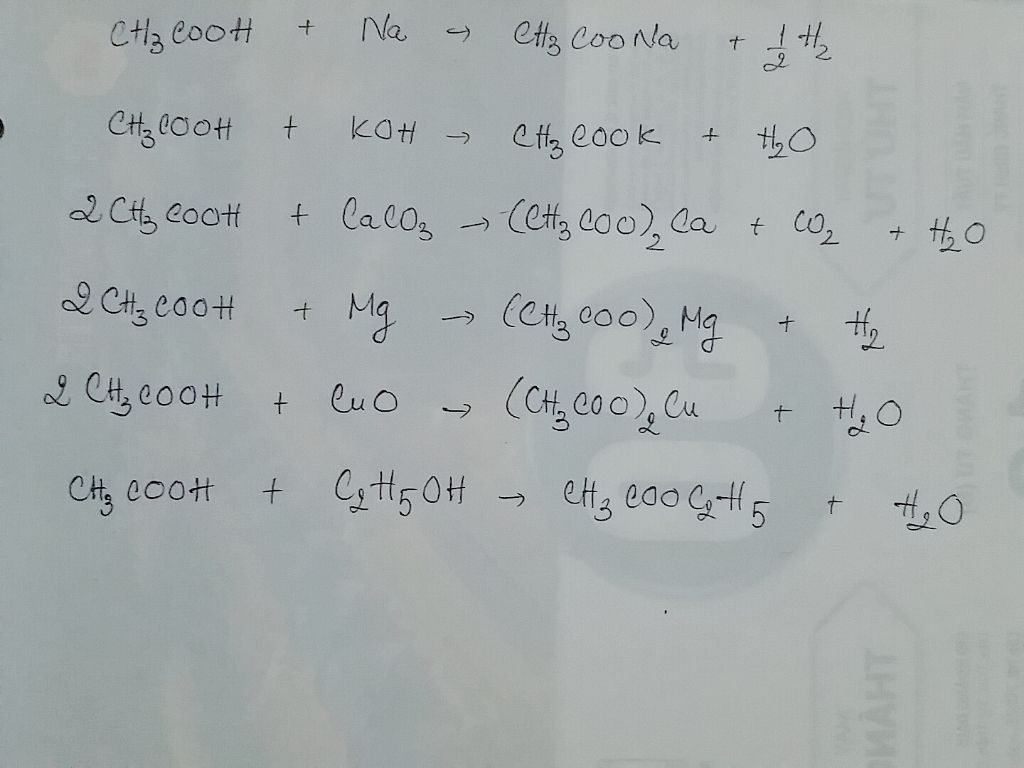 CH₃COOH + Na → CH₃COONa + ½ H₂
CH₃COOH + KOH → CH₃COOK + H₂O
2CH₃COOH + CaCO₃ → (CH₃COO)₂Ca + CO₂ + H₂O
2CH₃COOH + Mg → (CH₃COO)₂Mg + H₂
2CH₃COOH + CuO → (CH₃COO)₂Cu + H₂O
CH₃COOH + C₂H₅OH → CH₃COOC₂H₅ + H₂O